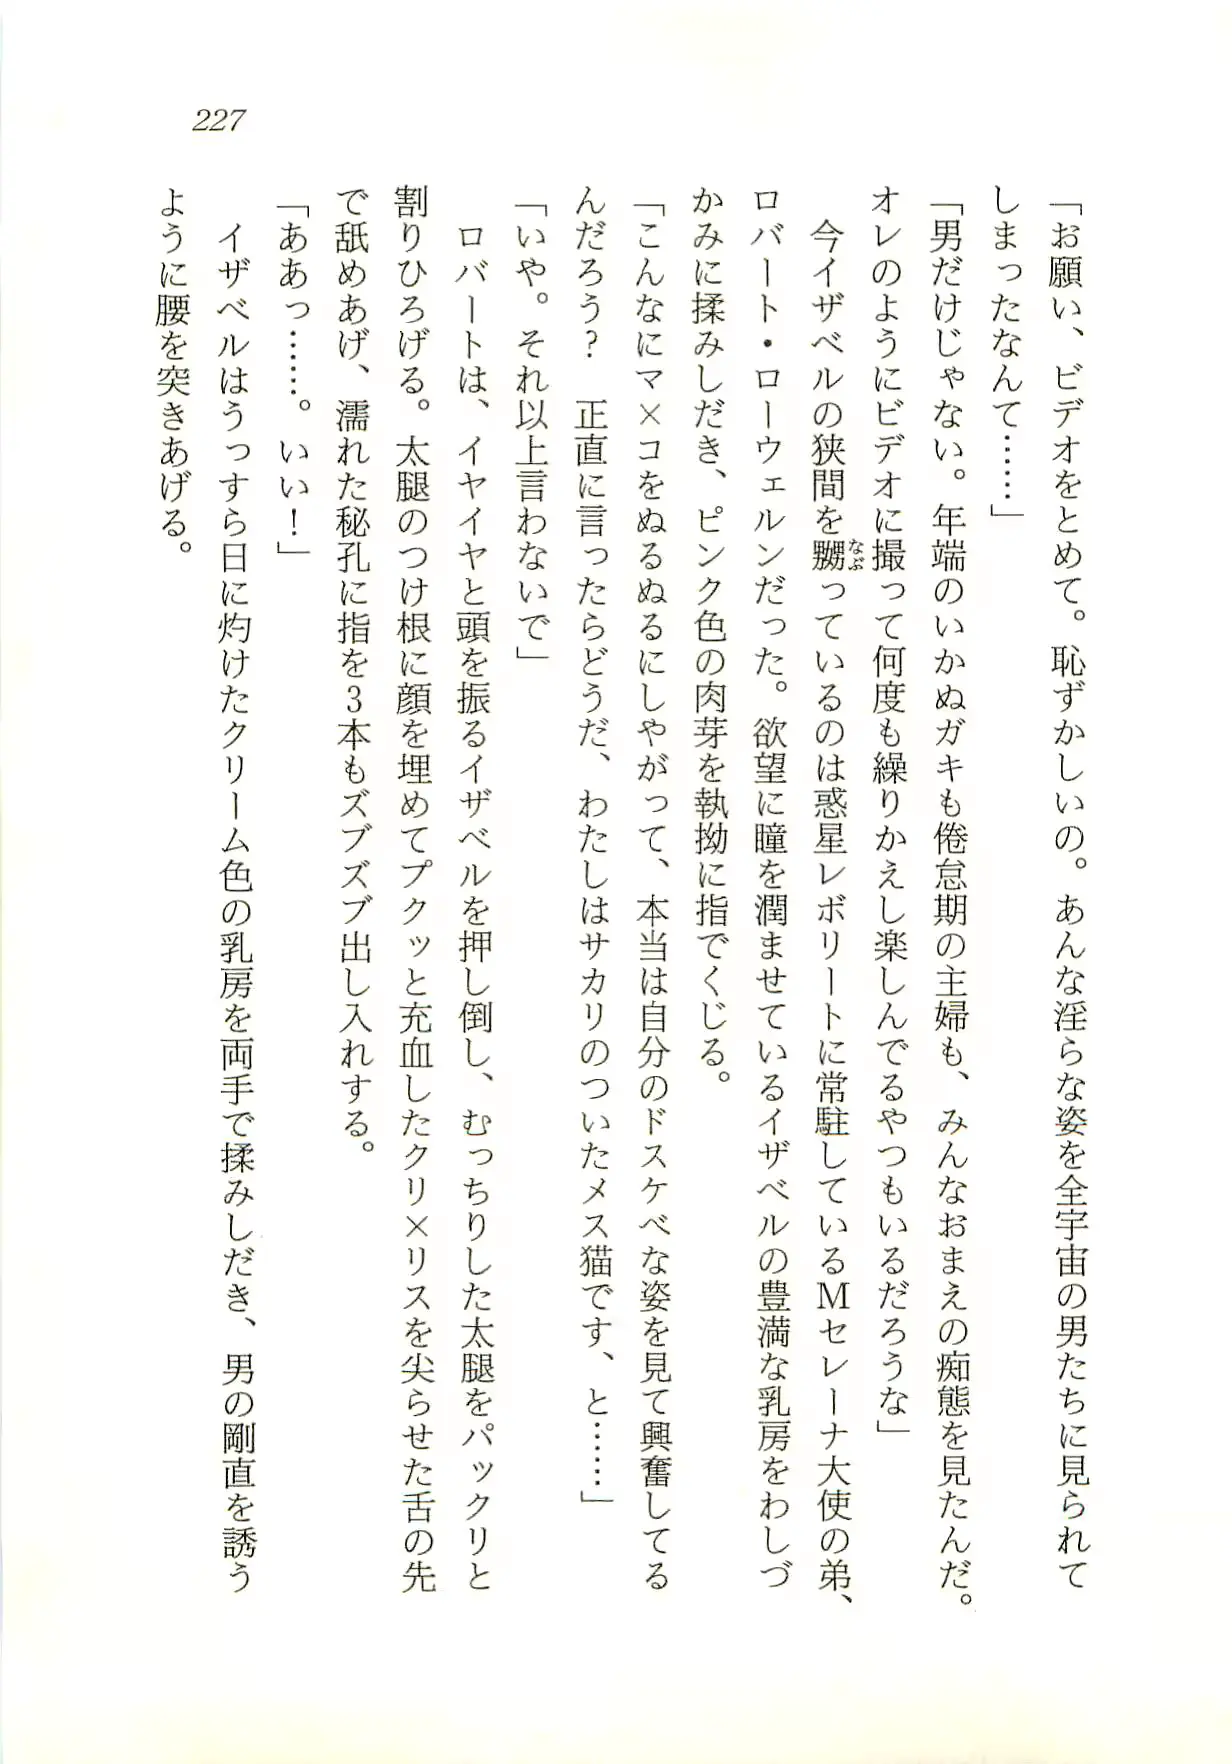 227
「お願い、ビデオをとめて。恥ずかしいの。あんな淫らな姿を全宇宙の男たちに見られて
しまったなんて……」
「男だけじゃない。年端のいかぬガキも倦怠期の主婦も、みんなおまえの痴態を見たんだ。
オレのようにビデオに撮って何度も繰りかえし楽しんでるやつもいるだろうな」
　今イザベルの狭間を嬲っているのは惑星レボリートに常駐しているMセレーナ大使の弟、
ロバート・ローウェルンだった。欲望に瞳を潤ませているイザベルの豊満な乳房をわしづ
かみに揉みしだき、ピンク色の肉芽を執拗に指でくじる。
「こんなにマ×コをぬるぬるにしやがって、本当は自分のドスケベな姿を見て興奮してる
んだろう？　正直に言ったらどうだ、わたしはサカリのついたメス猫です、と……」
「いや。それ以上言わないで」
　ロバートは、イヤイヤと頭を振るイザベルを押し倒し、むっちりした太腿をパックリと
割りひろげる。太腿のつけ根に顔を埋めてプクッと充血したクリ×リスを尖らせた舌の先
で舐めあげ、濡れた秘孔に指を3本もズブズブ出し入れする。
「ああっ……。いい！」
　イザベルはうっすら日に灼けたクリーム色の乳房を両手で揉みしだき、男の剛直を誘う
ように腰を突きあげる。